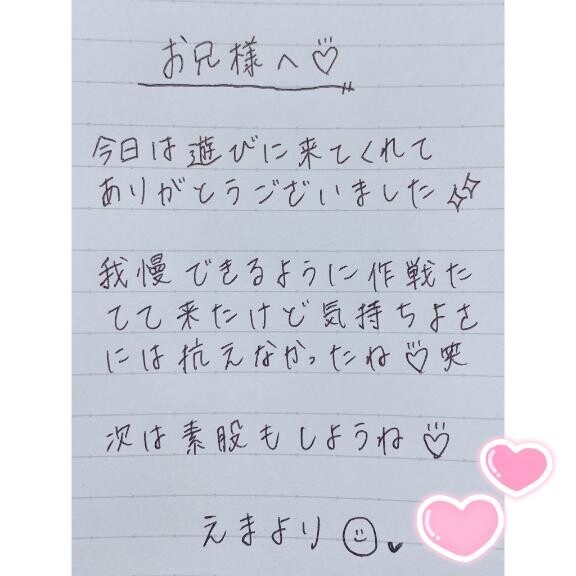 お兄様へ♡
今日は遊びに来てくれて
ありがとうございました✨
我慢できるように作戦た
てて来たけど気持ちよさ
には抗えなかったね♡笑
次は素股もしようね♡
えまより☺♥